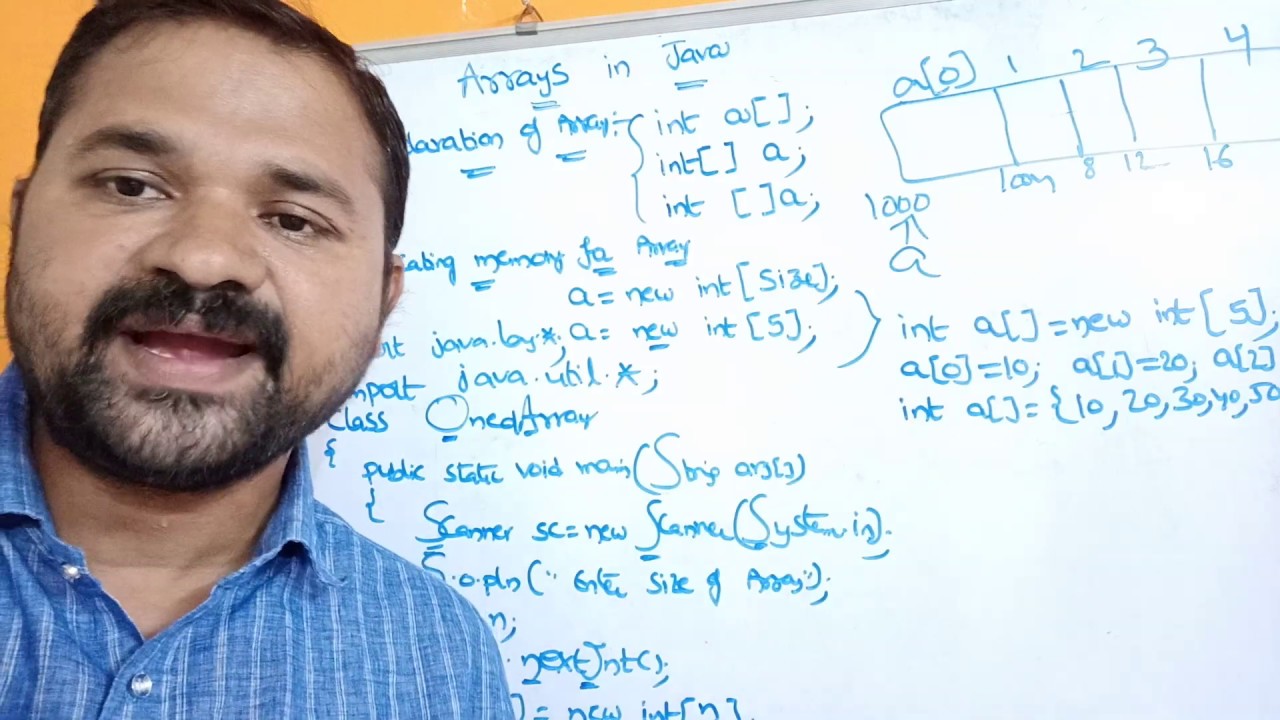 Arrays in Java
laration of Array:- { int a[];
int[] a;
int []a;
ating memory for Array
a = new int[size];
rt java.lang.*; a = new int [5];
import java.util.*;
class OnedArray
{
public static void main(String args[])
{
Scanner sc=new Scanner(System.in).
S.o.pln(" Enter Size of Array");
n;
. nextInt();
] = new int[n].
a[0] 1 2 3 4
1000 1004 8 12 16
a
int a[]=new int[5];
a[0]=10; a[1]=20; a[2]
int a[]={10,20,30,40,50